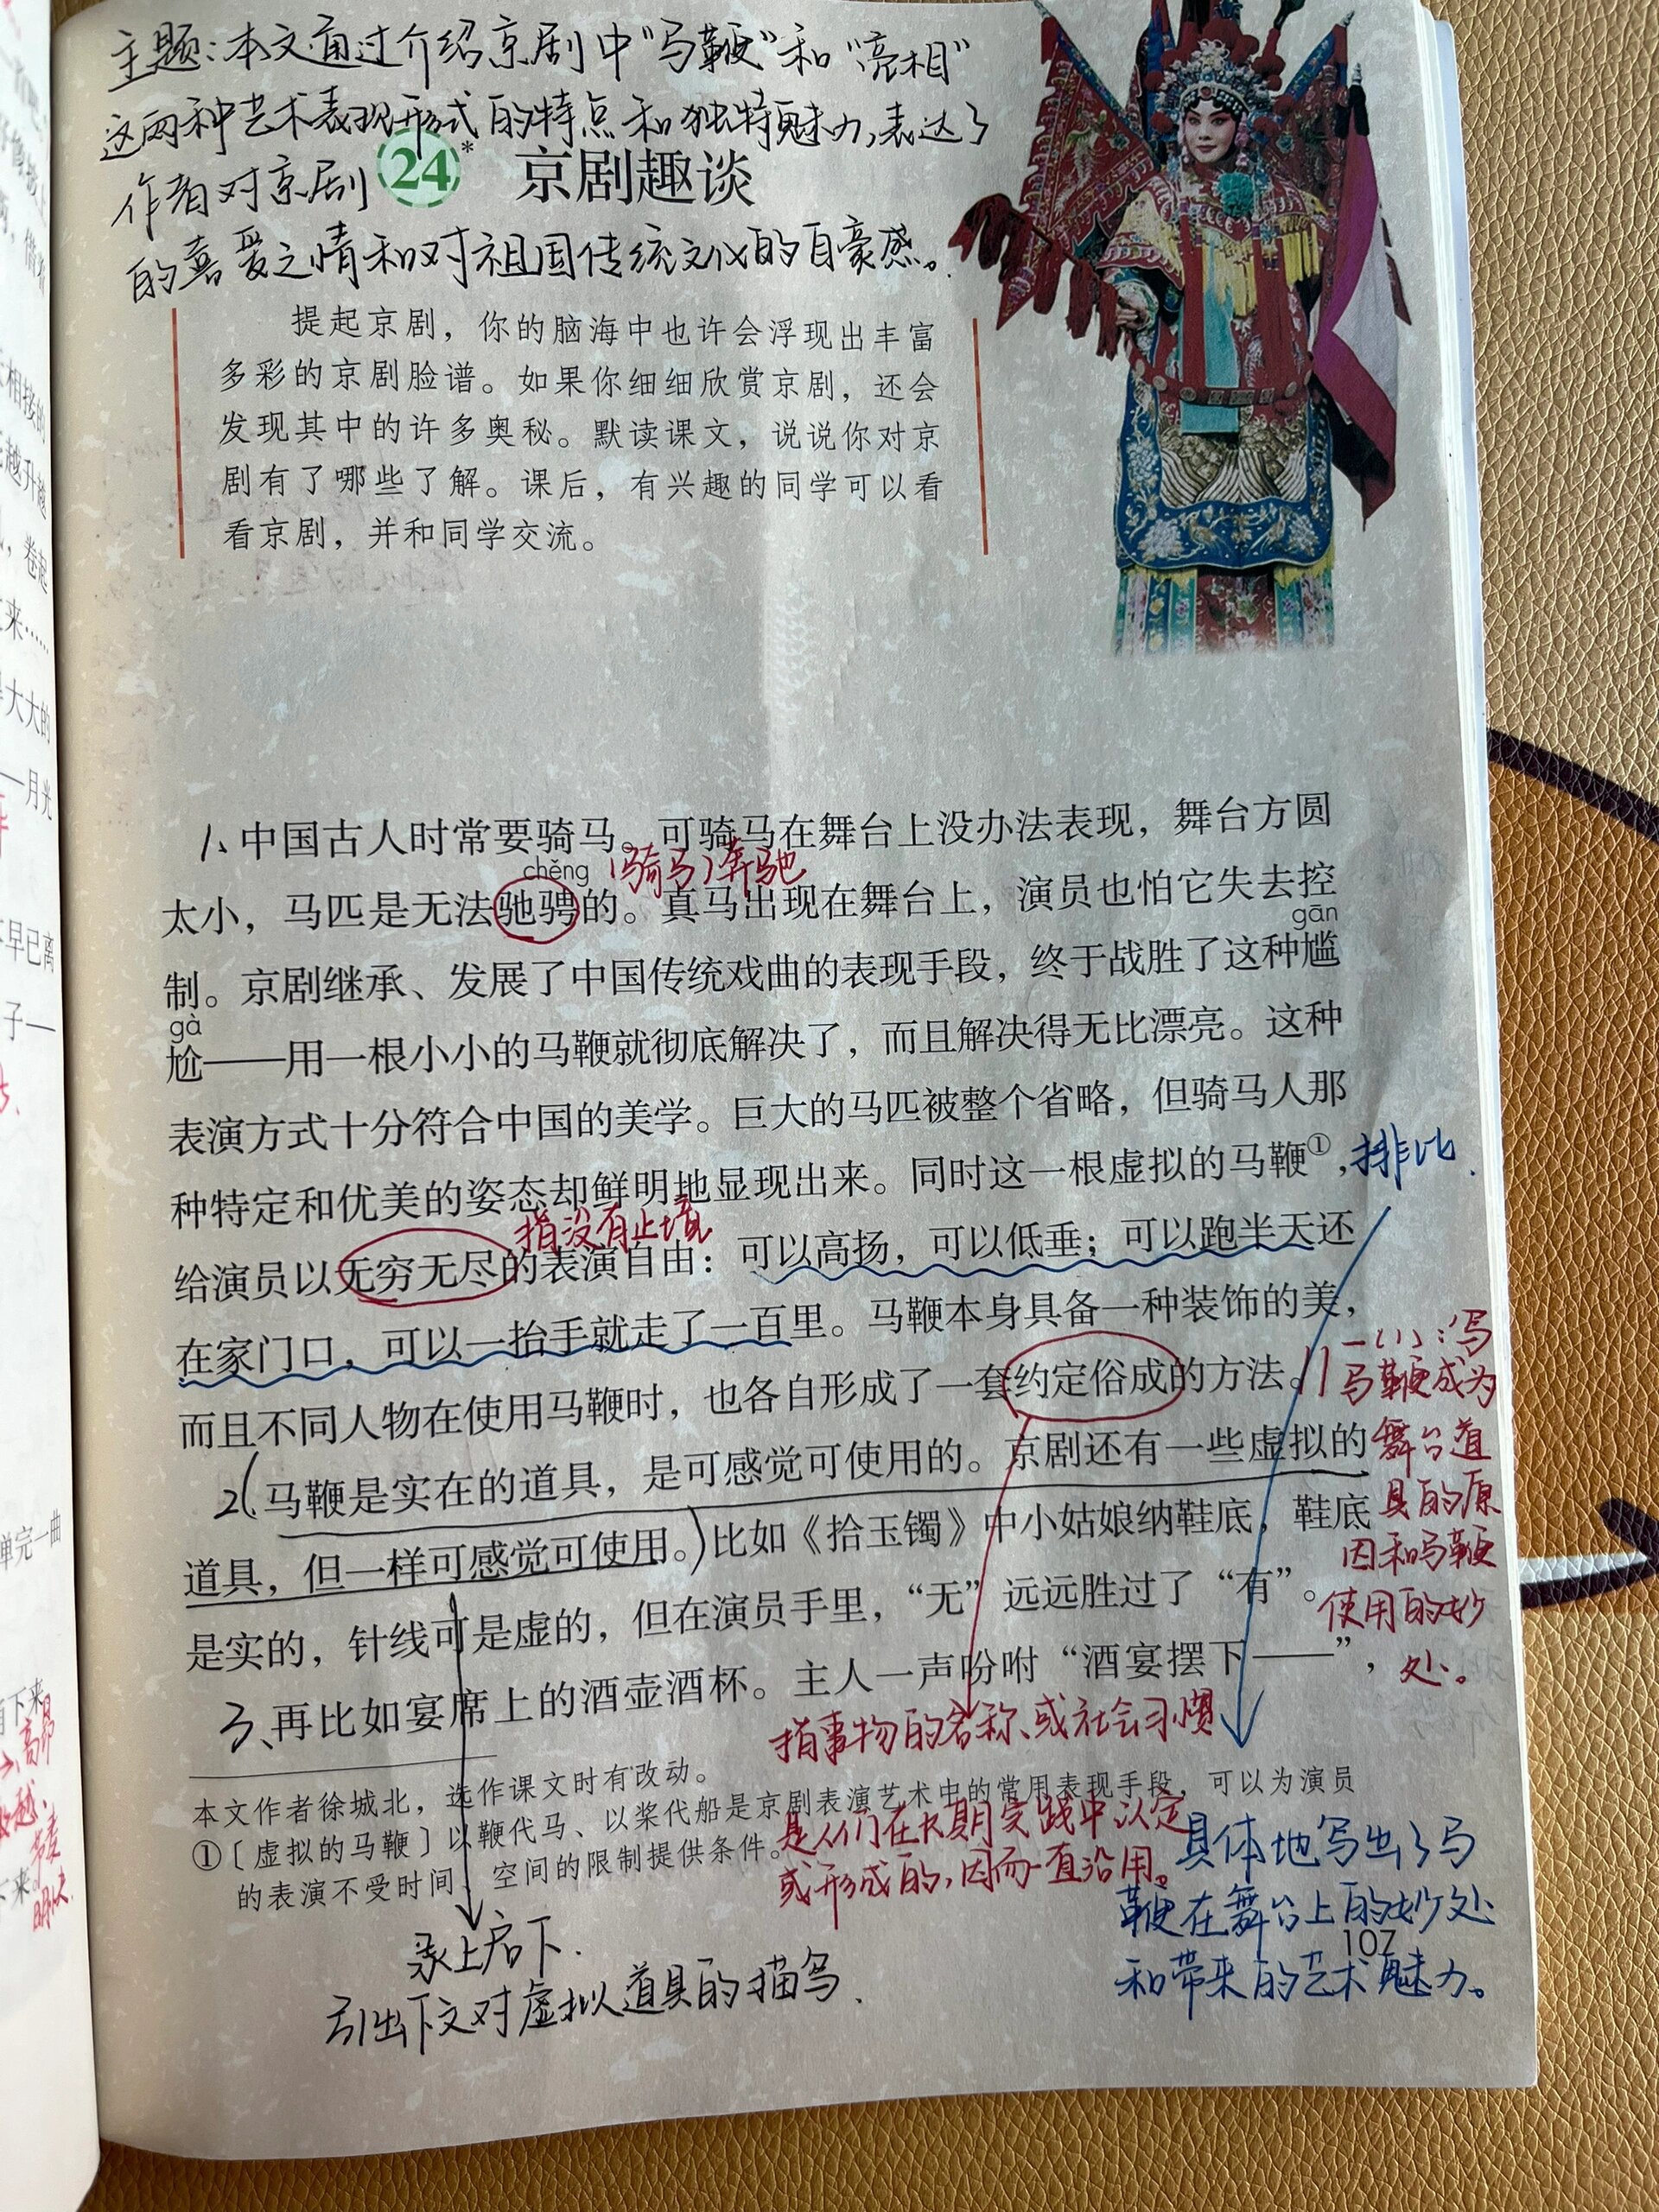 主题:本文通过介绍京剧中“马鞭”和“亮相”
这两种艺术表现形式的特点和独特魅力,表达了
作者对京剧
24* 京剧趣谈
的喜爱之情和对祖国传统文化的自豪感。
提起京剧，你的脑海中也许会浮现出丰富
多彩的京剧脸谱。如果你细细欣赏京剧，还会
发现其中的许多奥秘。默读课文，说说你对京
剧有了哪些了解。课后，有兴趣的同学可以看
看京剧，并和同学交流。
1、中国古人时常要骑马。可骑马在舞台上没办法表现，舞台方圆
chěng (骑马)奔驰
太小，马匹是无法驰骋的。真马出现在舞台上，演员也怕它失去控
gān
制。京剧继承、发展了中国传统戏曲的表现手段，终于战胜了这种尴
gà
尬——用一根小小的马鞭就彻底解决了，而且解决得无比漂亮。这种
表演方式十分符合中国的美学。巨大的马匹被整个省略，但骑马人那
种特定和优美的姿态却鲜明地显现出来。同时这一根虚拟的马鞭①，
排比.
指没有止境
给演员以无穷无尽的表演自由：可以高扬，可以低垂；可以跑半天还
在家门口，可以一抬手就走了一百里。马鞭本身具备一种装饰的美，
而且不同人物在使用马鞭时，也各自形成了一套约定俗成的方法。
一(1):写
马鞭成为
舞台道
具的原
因和马鞭
使用的妙
处。
2、马鞭是实在的道具，是可感觉可使用的。京剧还有一些虚拟的
道具，但一样可感觉可使用。比如《拾玉镯》中小姑娘纳鞋底，鞋底
是实的，针线可是虚的，但在演员手里，“无”远远胜过了“有”。
3、再比如宴席上的酒壶酒杯。主人一声吩咐“酒宴摆下——”，
指事物的名称、或社会习惯
是人们在长期实践中认定
或形成的,因而一直沿用。
本文作者徐城北，选作课文时有改动。
①〔虚拟的马鞭〕以鞭代马、以桨代船是京剧表演艺术中的常用表现手段，可以为演员
的表演不受时间、空间的限制提供条件。
具体地写出了马
鞭在舞台上的妙处
和带来的艺术魅力。
承上启下.
引出下文对虚拟道具的描写.
107